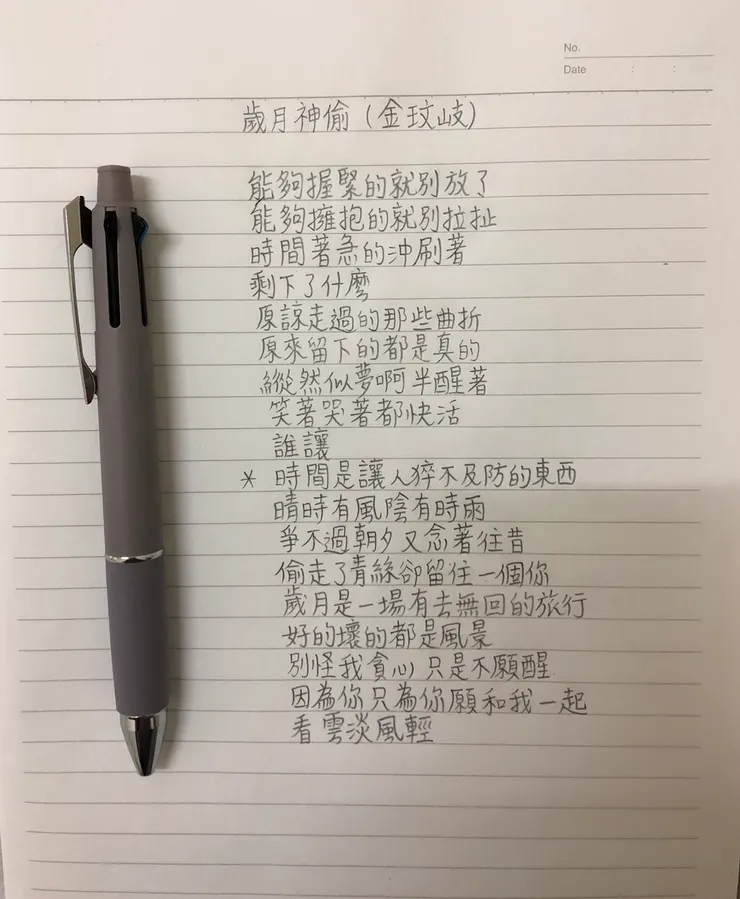 No.
Date : :
歲月神偷(金玟岐)
能夠握緊的就別放了
能夠擁抱的就別拉扯
時間著急的沖刷著
剩下了什麼
原諒走過的那些曲折
原來留下的都是真的
縱然似夢啊半醒著
笑著哭著都快活
誰讓
* 時間是讓人猝不及防的東西
晴時有風陰有時雨
爭不過朝夕又念著往昔
偷走了青絲卻留住一個你
歲月是一場有去無回的旅行
好的壞的都是風景
別怪我貪心只是不願醒
因為你只為你願和我一起
看雲淡風輕